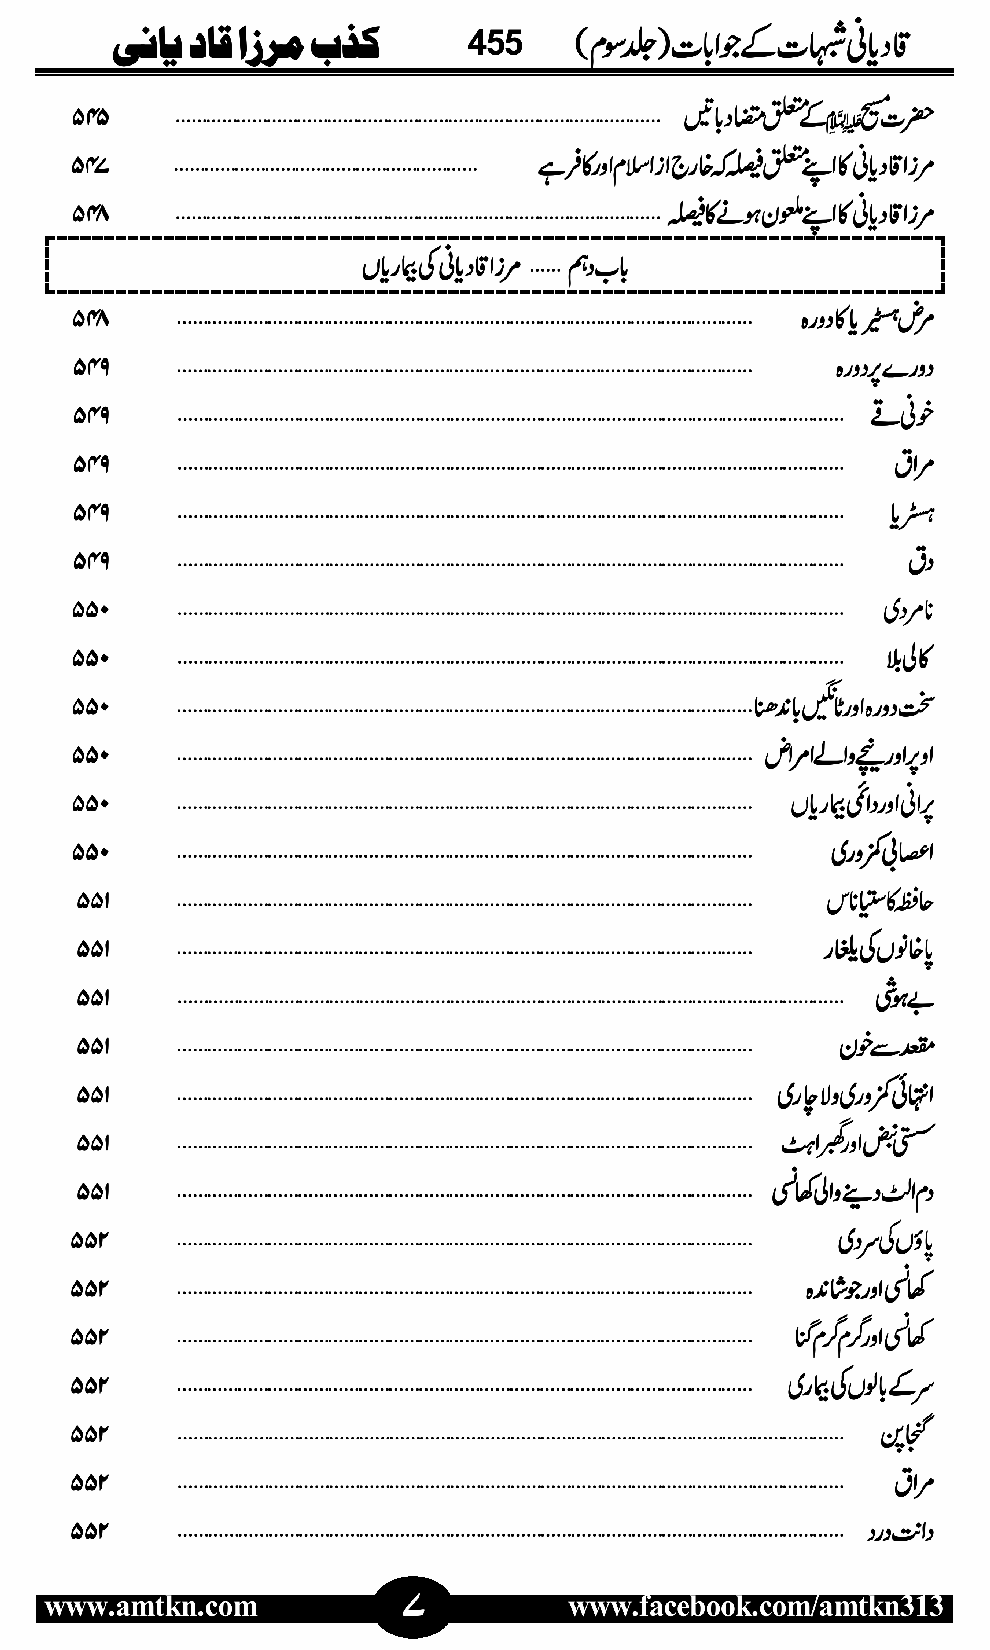 قادیانی شبہات کے جوابات (جلد سوم) 455 کذب مرزا قادیانی
حضرت مسیح علیہ السلام کے متعلق متضاد باتیں ........ ۵۴۵
مرزا قادیانی کا اپنے متعلق فیصلہ کہ خارج از اسلام اور کافر ہے ........ ۵۴۷
مرزا قادیانی کا اپنے ملعون ہونے کا فیصلہ ........ ۵۴۸
باب دہم ...... مرزا قادیانی کی بیماریاں
مرض ہسٹیریا کا دورہ ........ ۵۴۸
دورے پر دورہ ........ ۵۴۹
خونی قے ........ ۵۴۹
مراق ........ ۵۴۹
ہسٹریا ........ ۵۴۹
دق ........ ۵۴۹
نامردی ........ ۵۵۰
کالی بلا ........ ۵۵۰
سخت دورہ اور ٹانگیں باندھنا ........ ۵۵۰
اوپر اور نیچے والے امراض ........ ۵۵۰
پرانی اور دائمی بیماریاں ........ ۵۵۰
اعصابی کمزوری ........ ۵۵۰
حافظہ کا ستیاناس ........ ۵۵۱
پاخانوں کی یلغار ........ ۵۵۱
بے ہوشی ........ ۵۵۱
مقعد سے خون ........ ۵۵۱
انتہائی کمزوری و لاچاری ........ ۵۵۱
سستی نبض اور گھبراہٹ ........ ۵۵۱
دم الٹ دینے والی کھانسی ........ ۵۵۱
پاؤں کی سردی ........ ۵۵۲
کھانسی اور جوشاندہ ........ ۵۵۲
کھانسی اور گرم گرم گنا ........ ۵۵۲
سر کے بالوں کی بیماری ........ ۵۵۲
گنجا پن ........ ۵۵۲
مراق ........ ۵۵۲
دانت درد ........ ۵۵۲
www.amtkn.com ۷ www.facebook.com/amtkn313